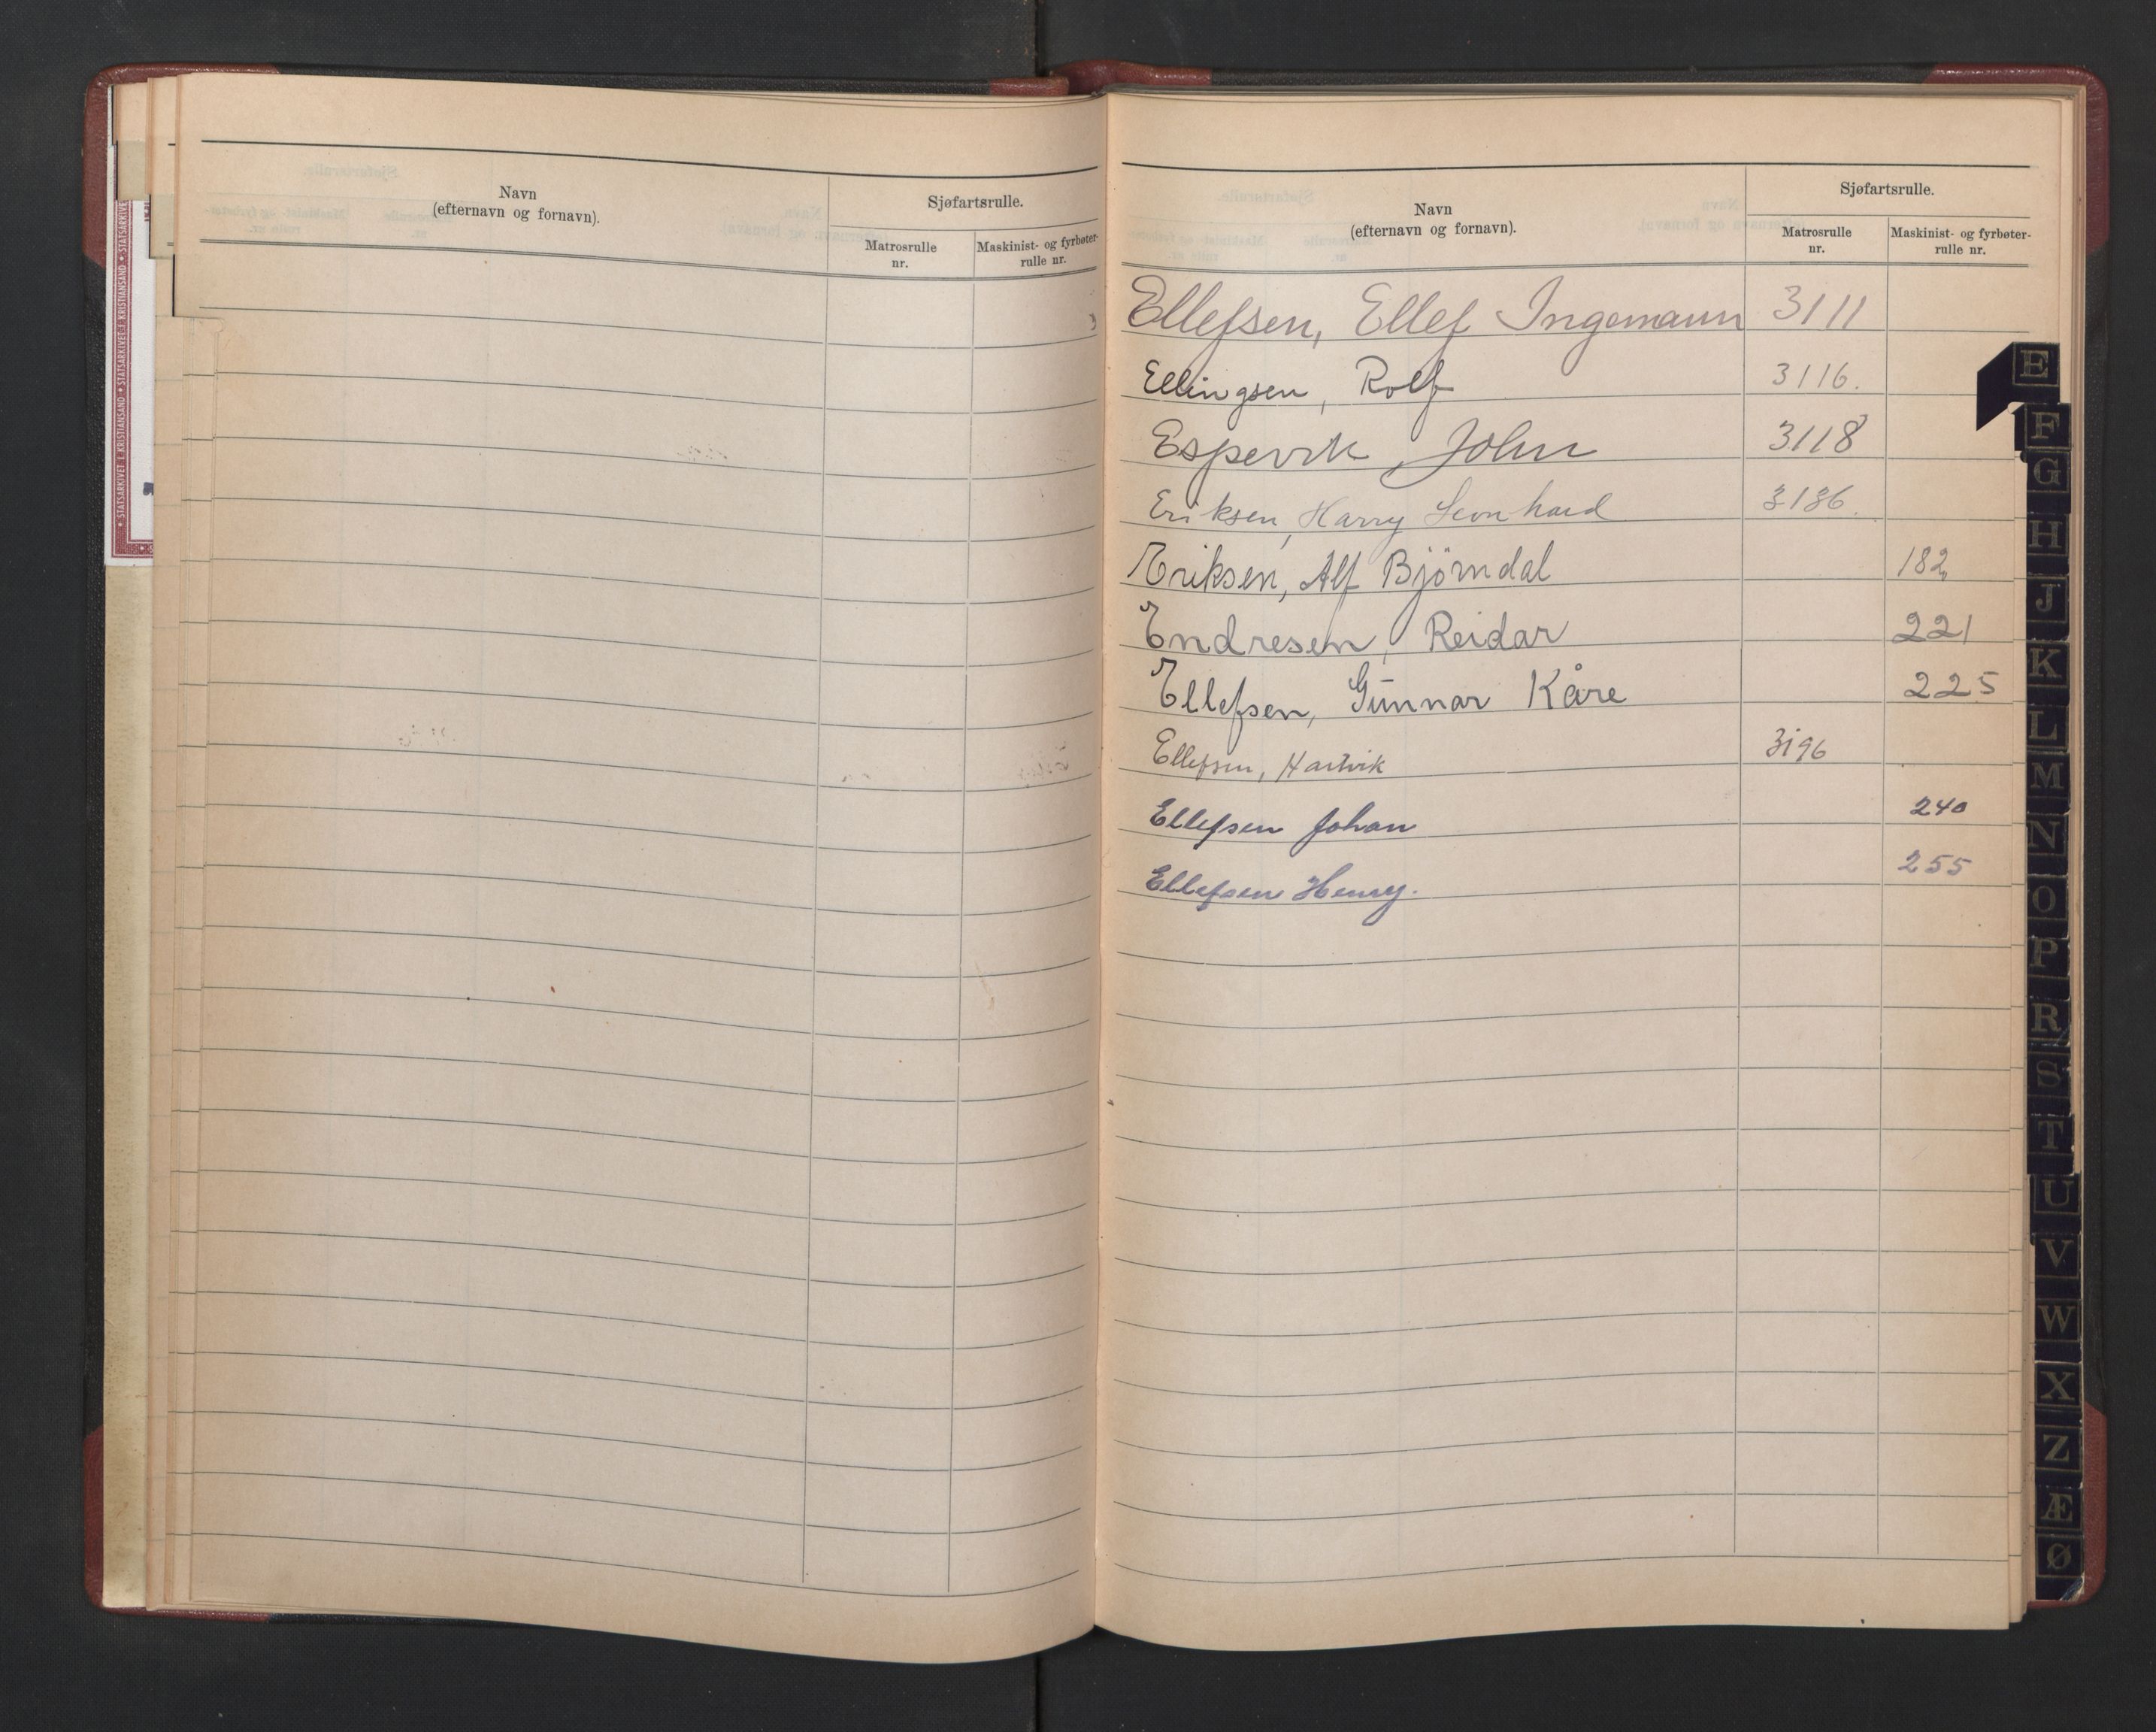 Navn
(efternavn og fornavn).
Sjøfartsrulle.
Matrosrulle
nr.
Maskinist- og fyrbøter-
rulle nr.
Navn
(efternavn og fornavn).
Sjøfartsrulle.
Matrosrulle
nr.
Maskinist- og fyrbøter-
rulle nr.
Ellefsen, Ellef Ingemann 3111
Ellingsen, Rolf 3116.
Espevik, John 3118
Eriksen, Harry Leonhard 3136.
Eriksen, Alf Bjørndal 182
Endresen, Reidar 221
Ellefsen, Gunnar Kåre 225
Ellefsen, Hartvik 3196
Ellefsen Johan 240
Ellefsen Henry. 255
E
F
G
H
J
K
L
M
N
O
P
R
S
T
U
V
W
X
Z
Æ
Ø
STATSARKIVET I KRISTIANSAND • STATSARKIVET I KRISTIANSAND • STATSARKIVE